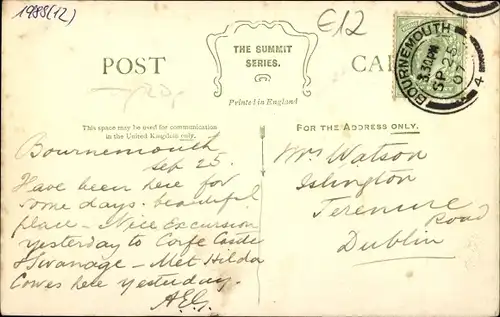 1988(12)
€12
POST
THE SUMMIT
SERIES.
Printed in England
BOURNEMOUTH
SP 25
07
4
This space may be used for communication
in the United Kingdom only.
FOR THE ADDRESS ONLY.
Bournemouth
Sep 25.
Have been here for
some days. beautiful
place – Nice Excursion
yesterday to Corfe Castle
& Swanage – Met Hilda
Cowes here yesterday.
A.E.G.
Mrs Watson
Islington
Terenure
Road
Dublin